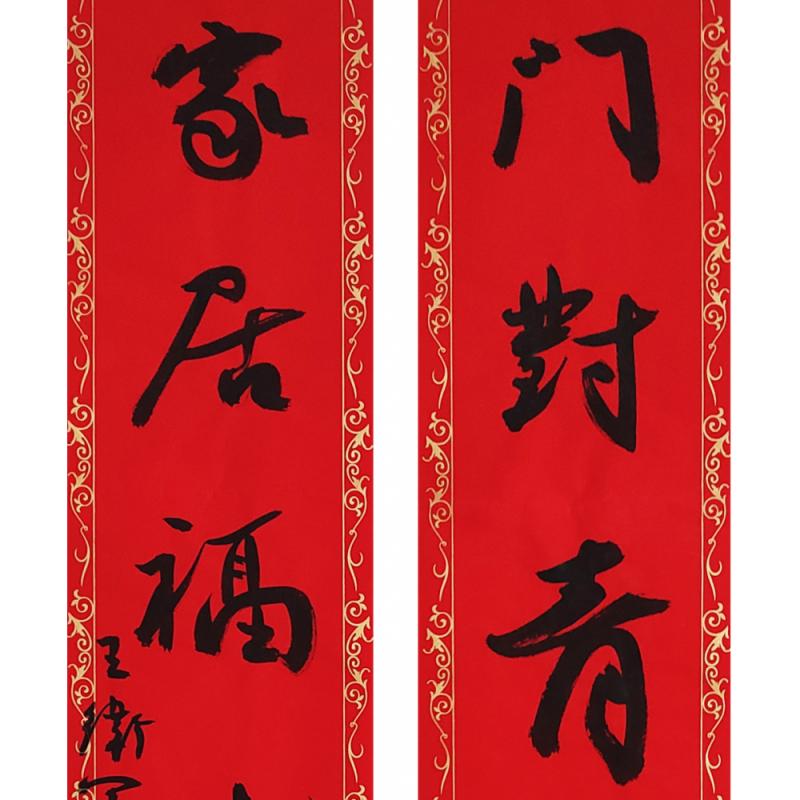 门對青
家居福
王衛